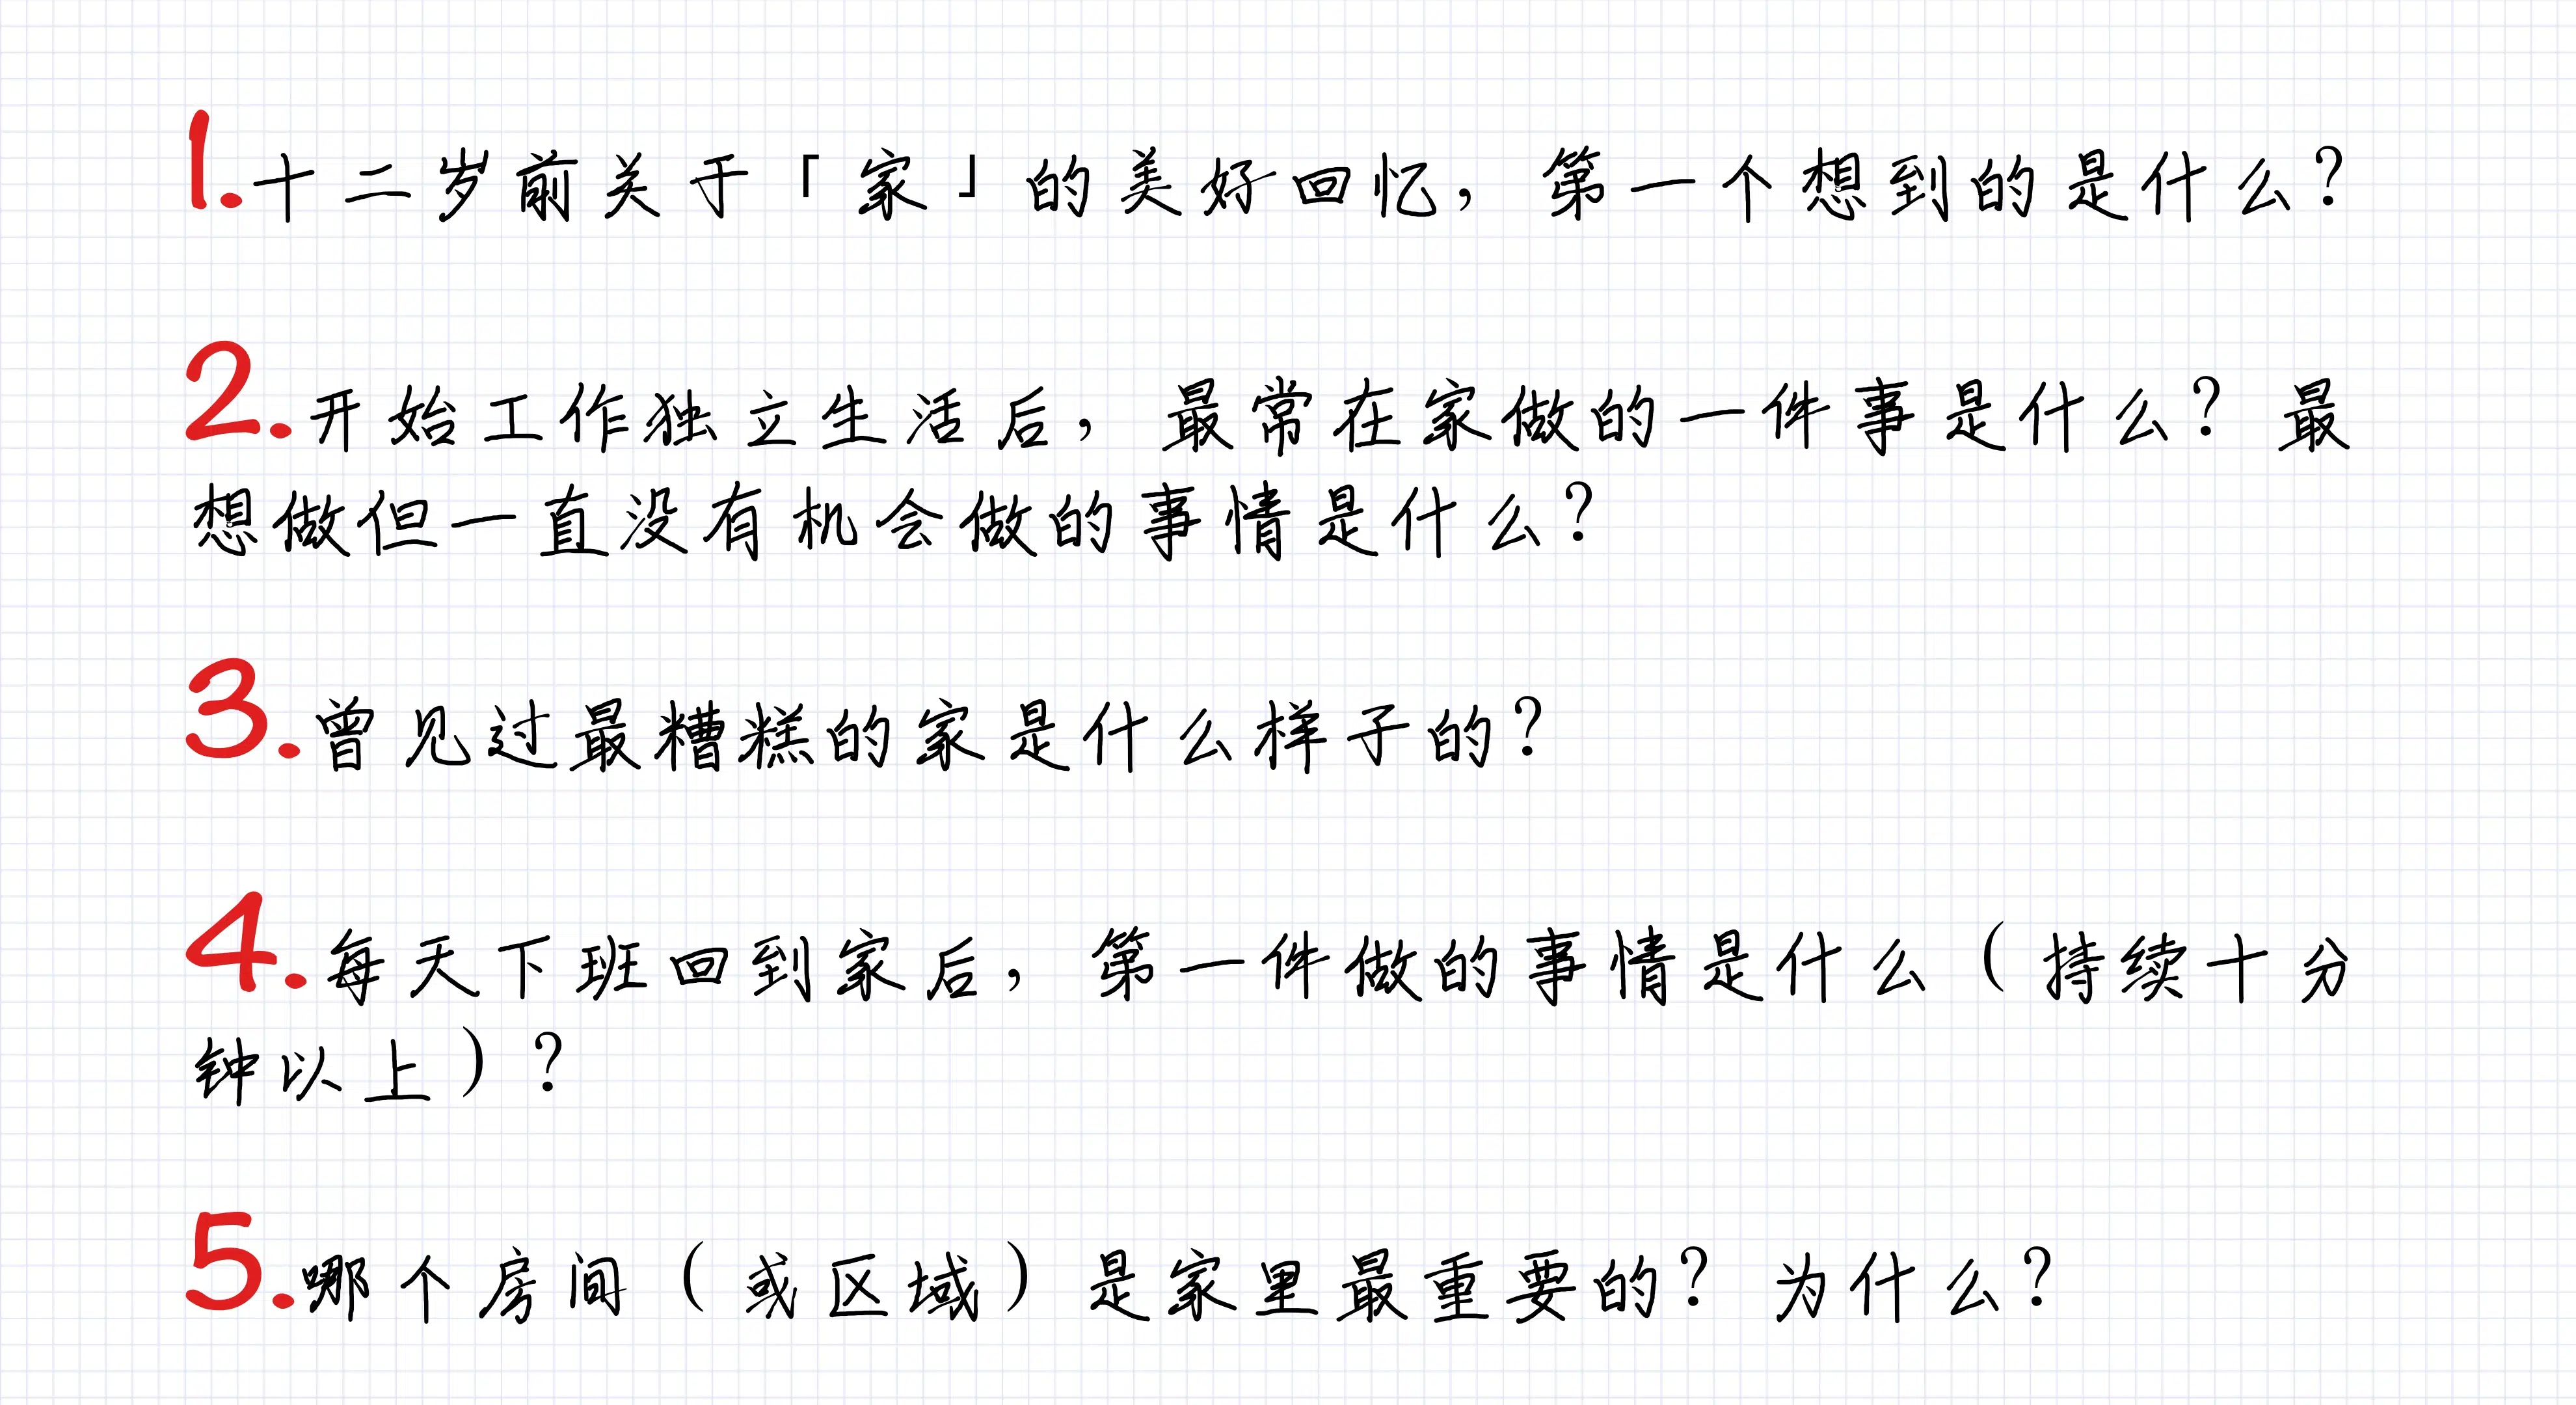 1.十二岁前关于「家」的美好回忆，第一个想到的是什么？
2.开始工作独立生活后，最常在家做的一件事是什么？最
想做但一直没有机会做的事情是什么？
3.曾见过最糟糕的家是什么样子的？
4.每天下班回到家后，第一件做的事情是什么（持续十分
钟以上）？
5.哪个房间（或区域）是家里最重要的？为什么？